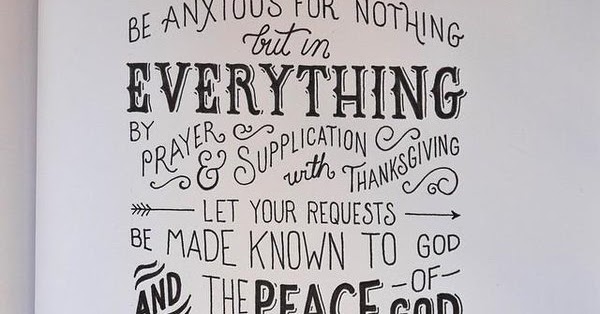 BE ANXIOUS FOR NOTHING
but in
EVERYTHING
BY PRAYER & SUPPLICATION
with THANKSGIVING
LET YOUR REQUESTS
BE MADE KNOWN TO GOD
AND THE PEACE OF GOD